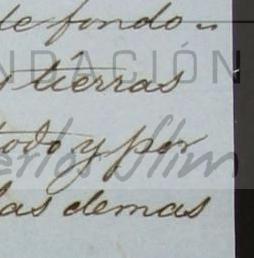 de fondo..
tierras
NDACIÓN
todo y por
Carlos Slim
las demas